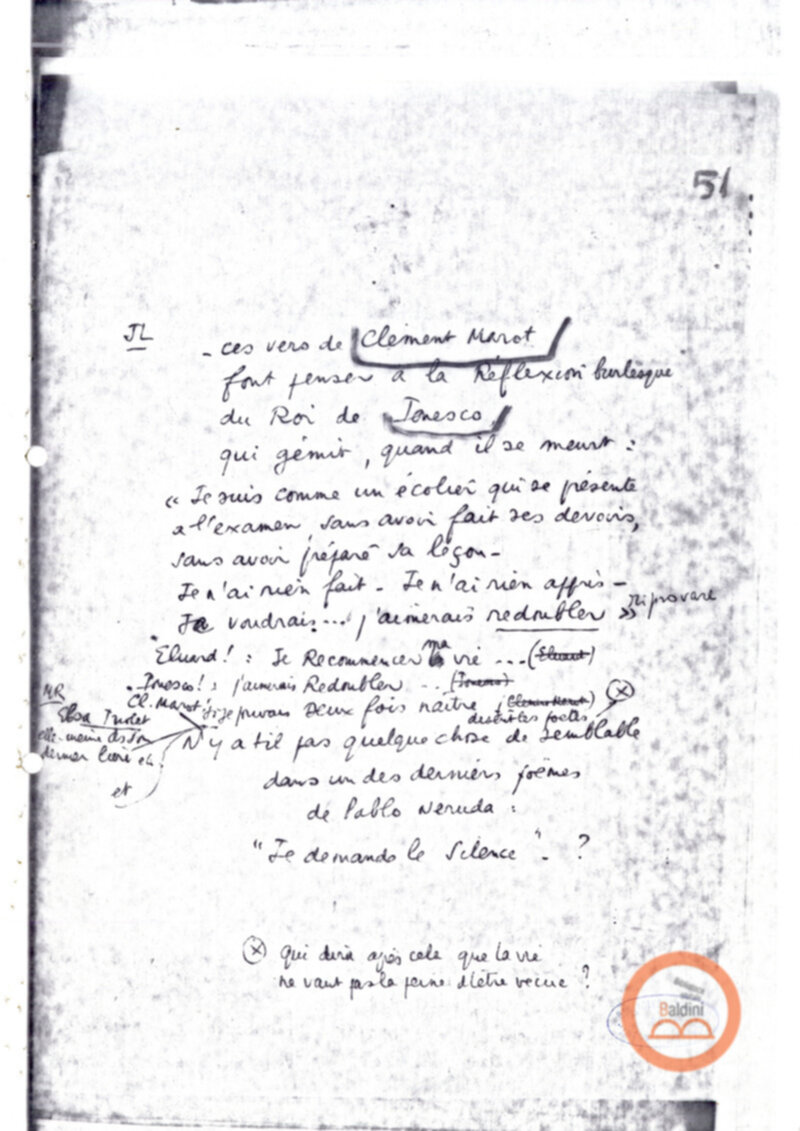 51
JL
- ces vers de Clément Marot
font penser à la Réflexion burlesque
du Roi de Ionesco,
qui gémit, quand il se meurt :
« Je suis comme un écolier qui se présente
a l'examen sans avoir fait ses devoirs,
sans avoir préparé sa leçon -
Je n'ai rien fait - Je n'ai rien appris -
Je voudrais ... j'aimerais redoubler »
Riprovare
"Eluard ! : Je Recommencer ma vie ... (Eluard)
Ionesco ! : j'aimerais Redoubler ... (Ionesco)
Cl. Marot : si je pouvais Deux fois naître (Clément Marot) ⓧ
disent les poètes
MR
Elsa Triolet
elle-même ds son
dernier livre
et
N'y a til pas quelque chose de semblable
dans un des derniers poëmes
de Pablo Neruda :
"Je demande le Silence" - ?
ⓧ Qui dira après cela que la vie
ne vaut pas la peine d'être vécue ?
Baldini